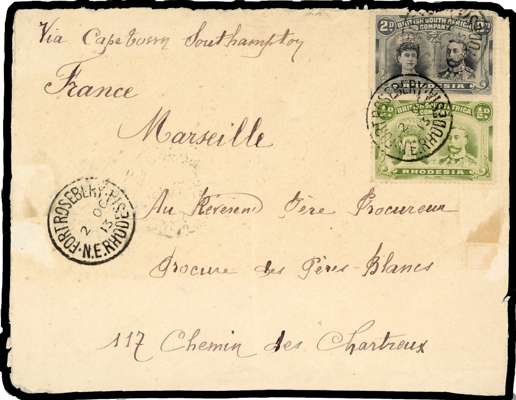 Via Cape Town Southampton
France
Marseille
Au Révérend Père Procureur
Procure des Pères-Blancs
117 Chemin des Chartreux
2D
BRITISH SOUTH AFRICA
COMPANY
RHODESIA
½D
BRITISH SOUTH AFRICA
COMPANY
RHODESIA
FORT ROSEBERY
2
13
N.E. RHODESIA
FORT ROSEBERY
2 OC
13
N.E. RHODESIA